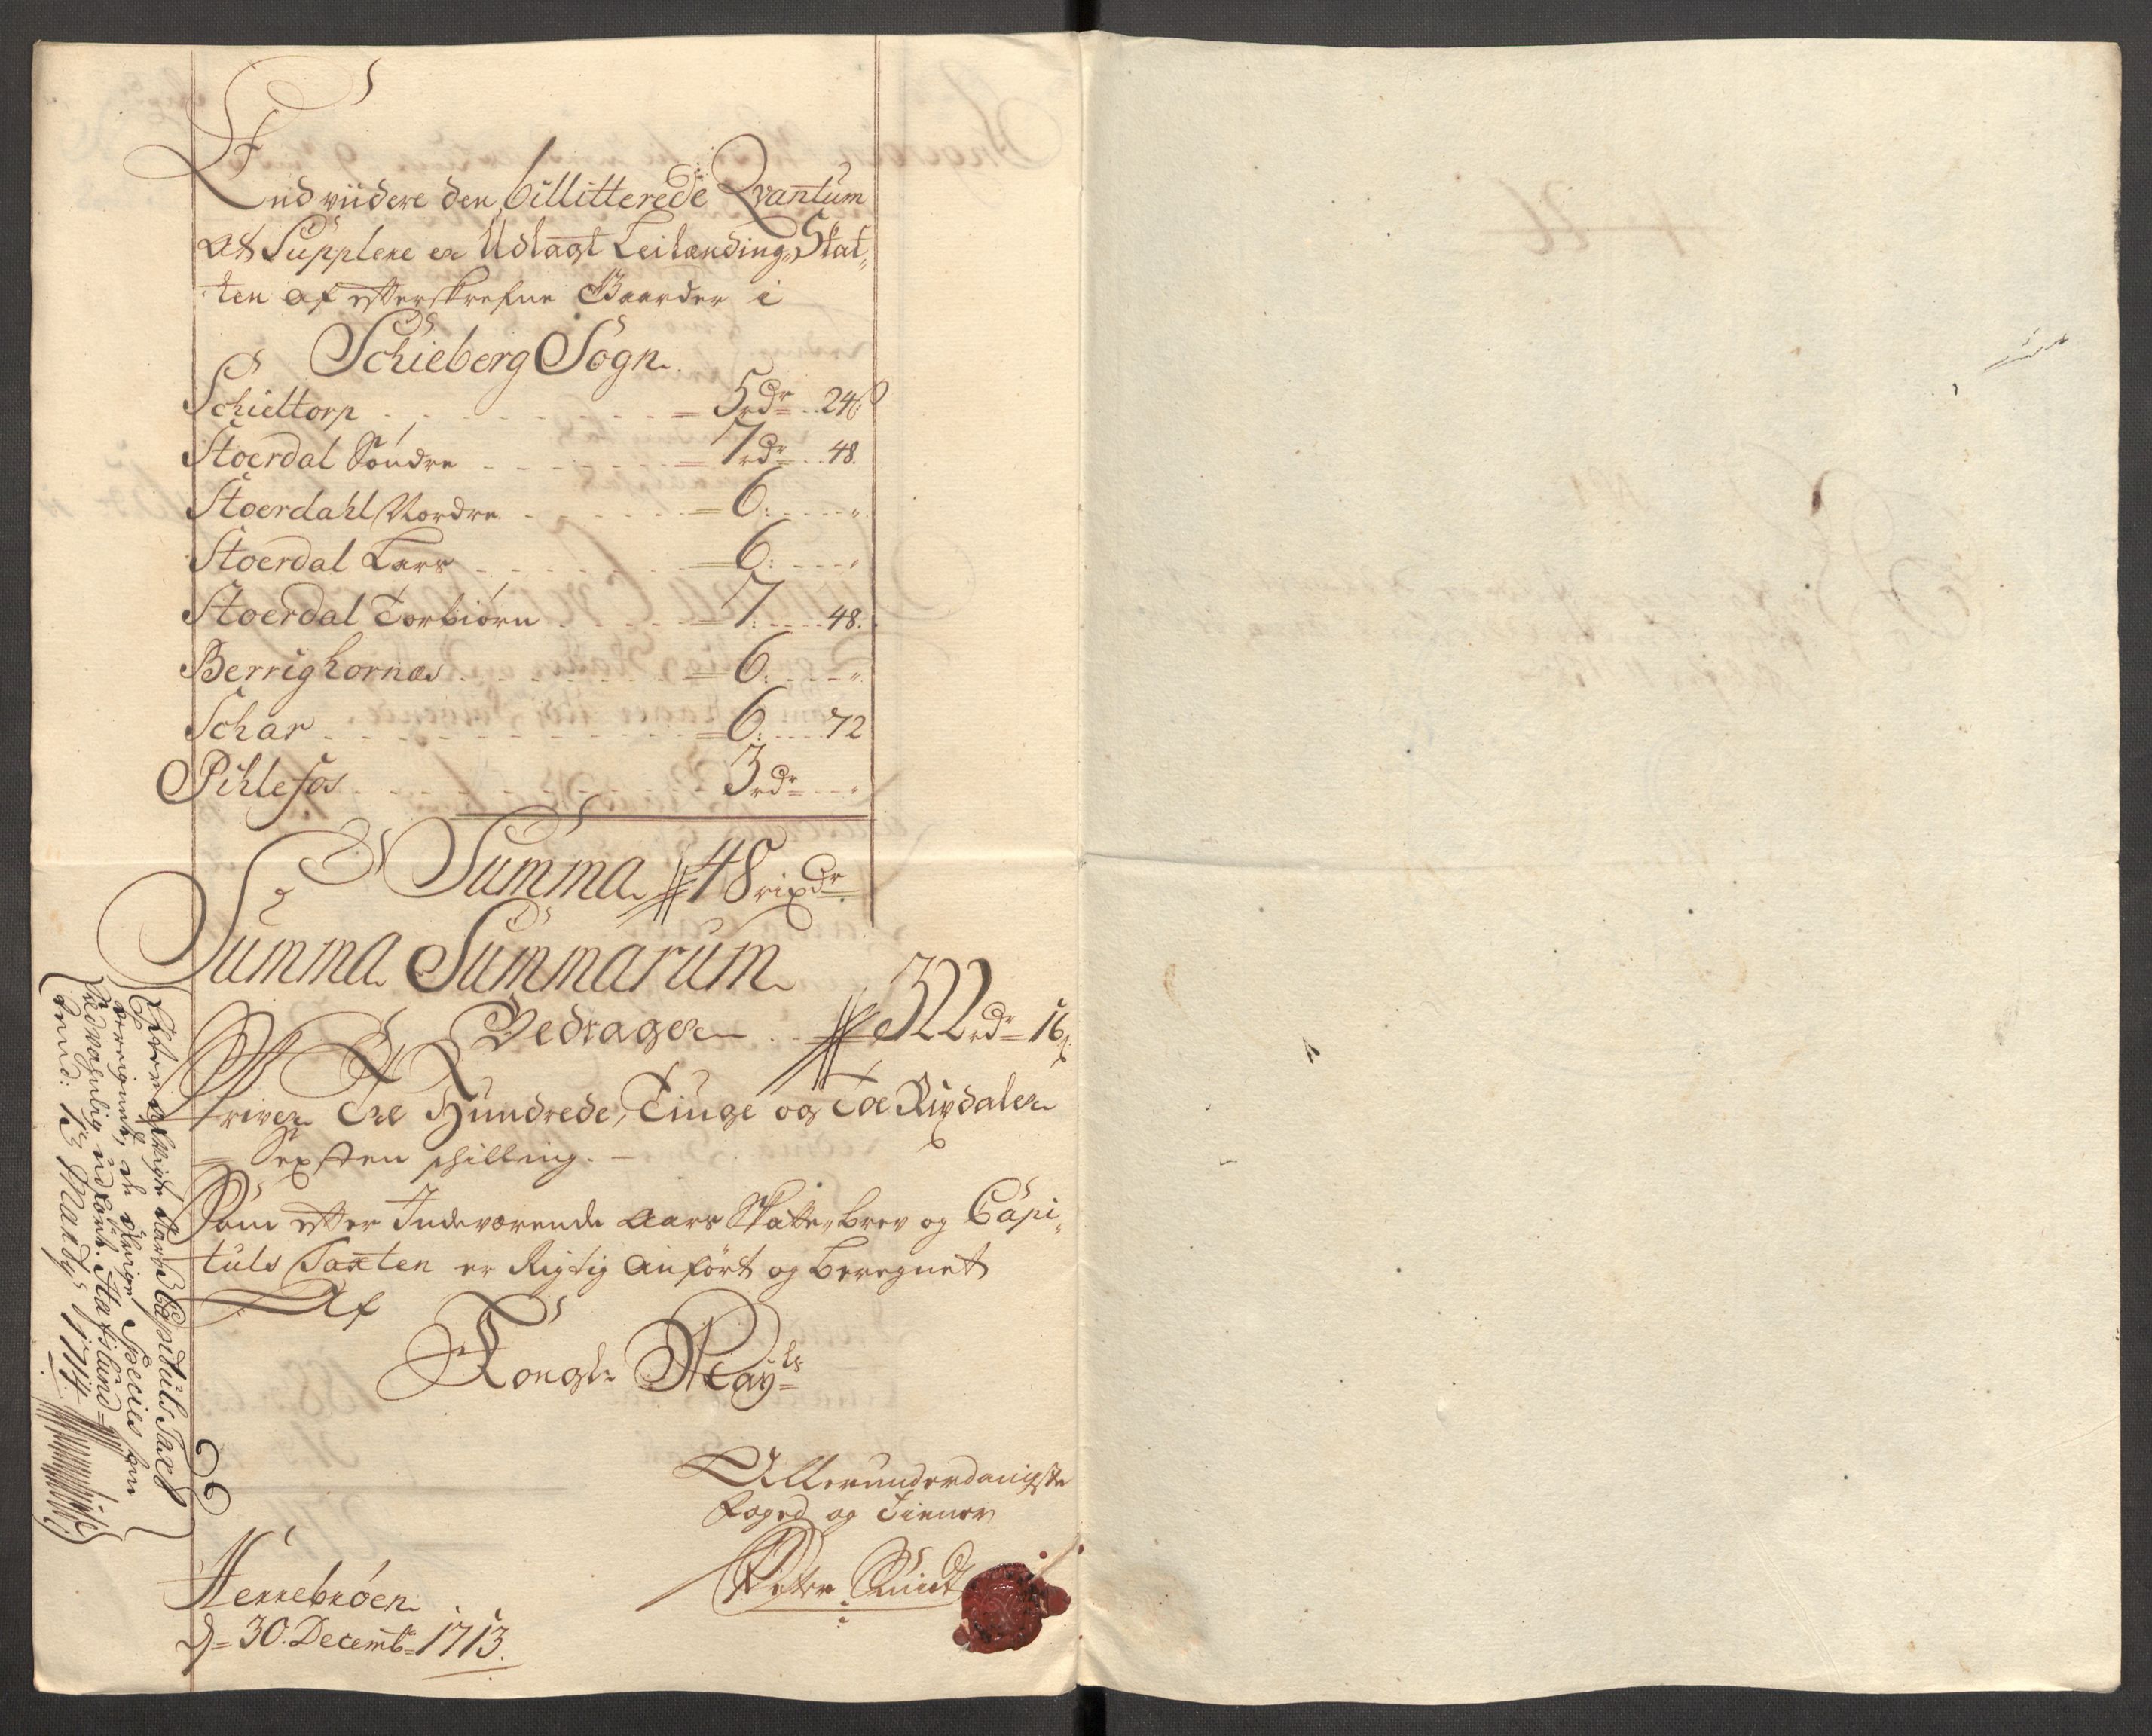 End viidere den billitterede Qvantum
at Supplere er Udlagt Leilænding Skat„
ten af efterskrefne Gaarder i
Schieberg Sogn.
Schieltorp - - - 5 rdr - 24 ß
Stoerdal Söndre - - - 7 rdr - 48.
Stoerdahl Nordre - - - 6: - - „
Stoerdal Lars - - - 6: - - „
Stoerdal Torbiörn - - - 7: - - 48.
Berrighornæs - - - 6: - - „
Schar - - - 6: - - 72
Pihlefos - - - 3 rdr - - „
Summa 48 rixdr
Summa Summarum
Bedrager - 322 rdr 16 ß
Skriver Tre Hundrede, Tiuge og Toe Rixdaler
Sexsten schilling.
Som efter Indeværende Aars Skatte, brev og Capi„
tuls Taxten er Rigtig anfört og beregnet
Af
Kongl. Mayts
Allerunderdanigste
foged og Tiener
Peter
Herrebröen
d= 30. Decemb= 1713.
Efter Aars Capituls Taxt
beregnet, de övrige Species som
udført. Slafslund
13 Marty 1714.